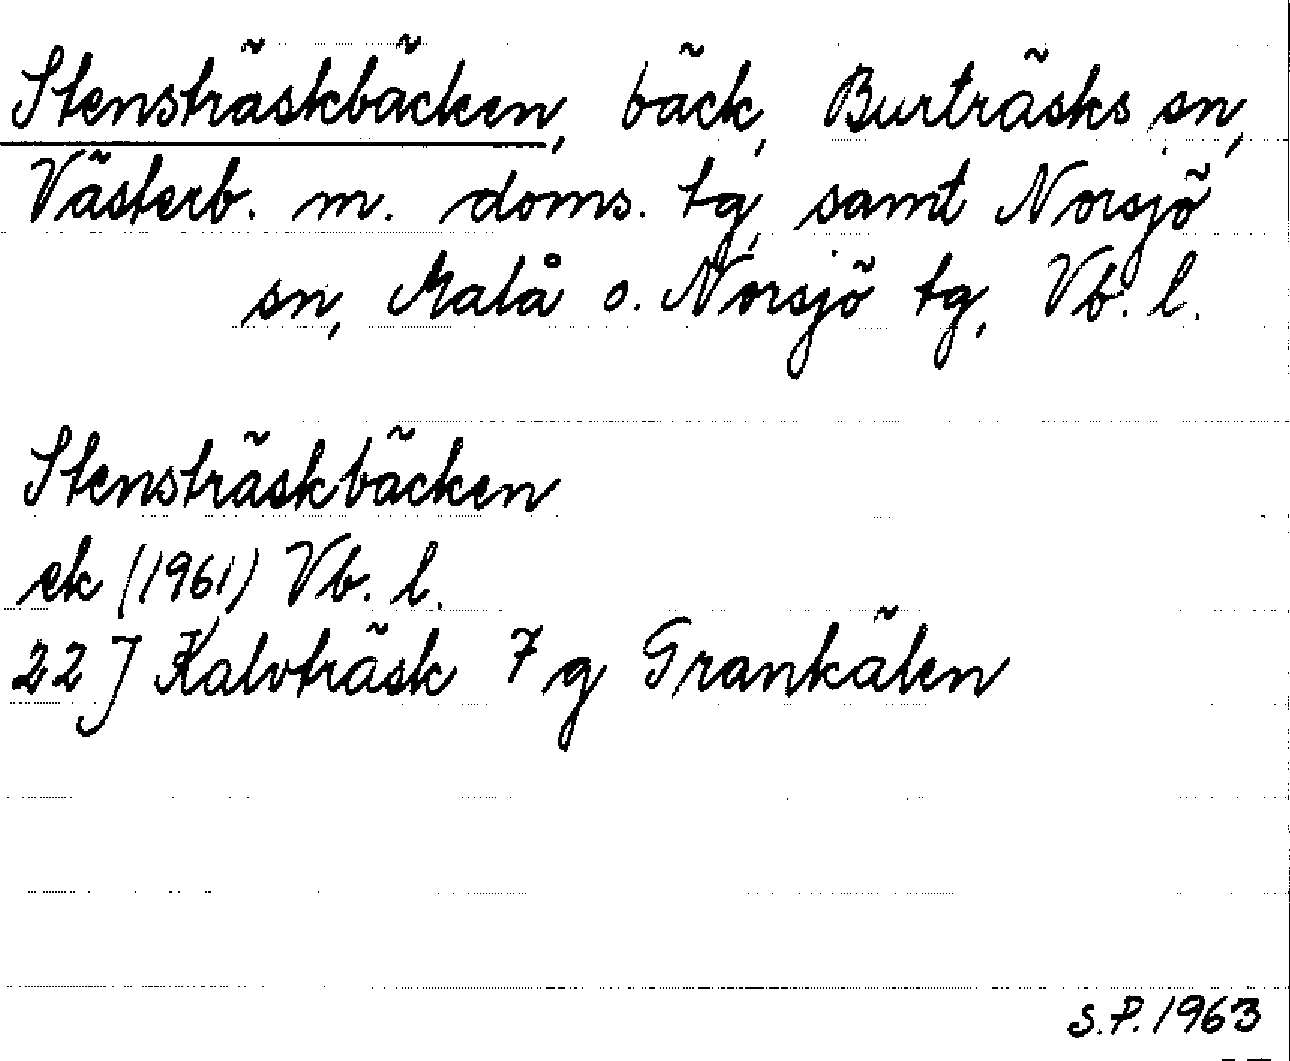 Stensträskbäcken, bäck, Burträsks sn,
Västerb. m. doms. tg, samt Norsjö
sn, Malå o. Norsjö tg, Vb. l.
Stensträskbäcken
ek (1961) Vb. l.
22 J Kalvträsk 7 g Grankälen
S.P. 1963